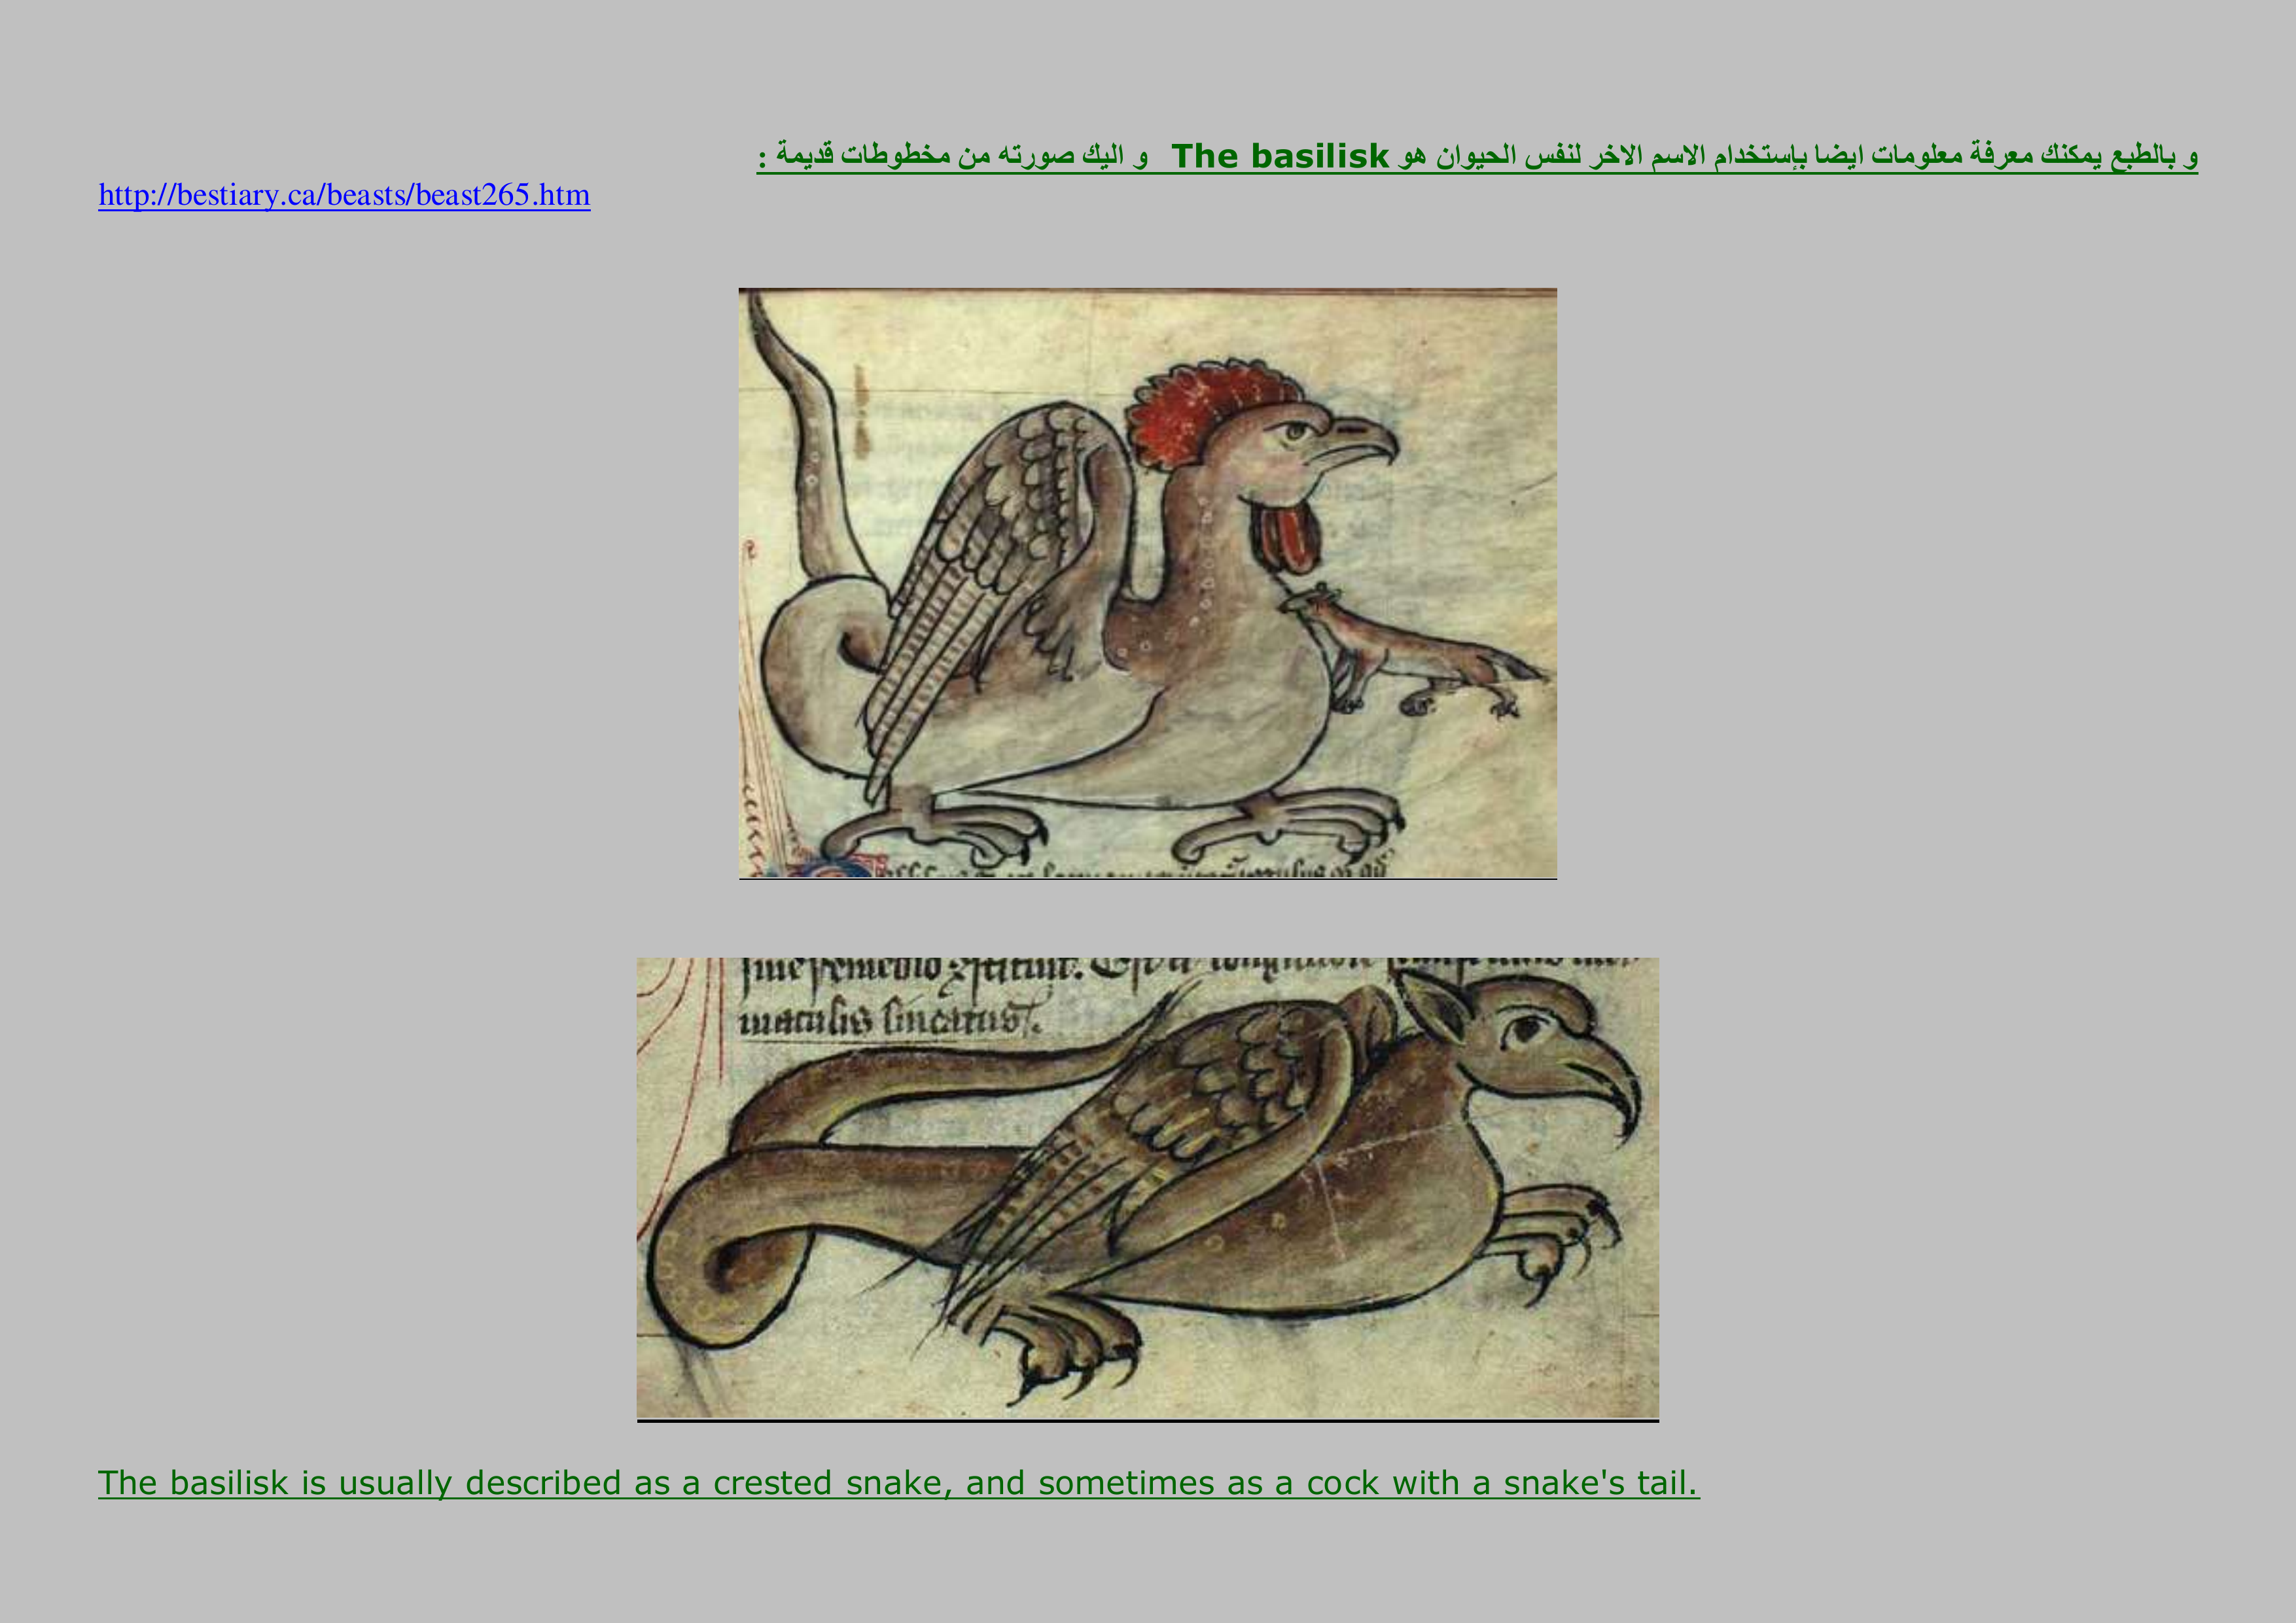 و بالطبع يمكنك معرفة معلومات ايضا بإستخدام الاسم الاخر لنفس الحيوان هو The basilisk و اليك صورته من مخطوطات قديمة :
http://bestiary.ca/beasts/beast265.htm
maculis lineatus.
The basilisk is usually described as a crested snake, and sometimes as a cock with a snake's tail.